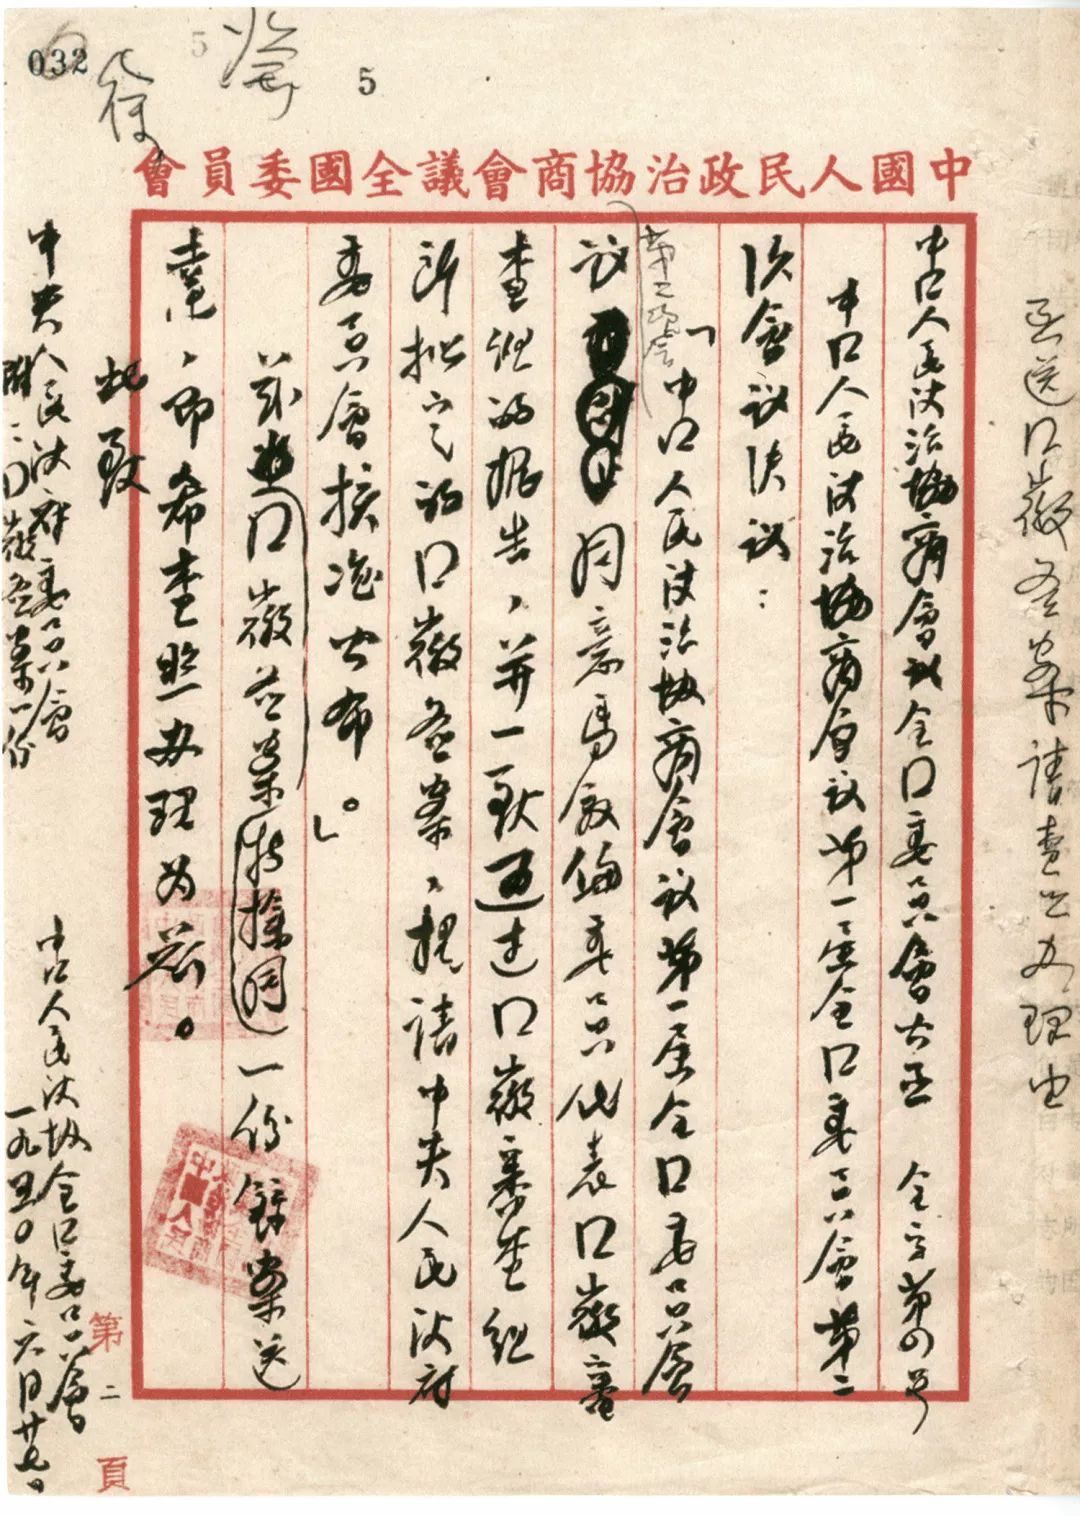 032
5
5
中國人民政治協商會議全國委員會
函送国徽图案請查照办理由
中国人民政治協商會議全国委员會公函 全字第四号
中国人民政治協商會議第一届全国委员會第二
次會議决議：
「中国人民政治协商會議第一届全国委员會
第二次會
議同意馬叙倫委员代表国徽審
查组的报告，并一致通过国徽審查组
所拟定的国徽图案，提請中央人民政府
委员會核准公布。」
兹 国徽图案特檢同一份錄案送
達，即希查照办理为荷。
此致
中央人民政府委员會
附：国徽图案一份
中国人民政协全国委员會
一九五〇年六月廿七日
第二頁